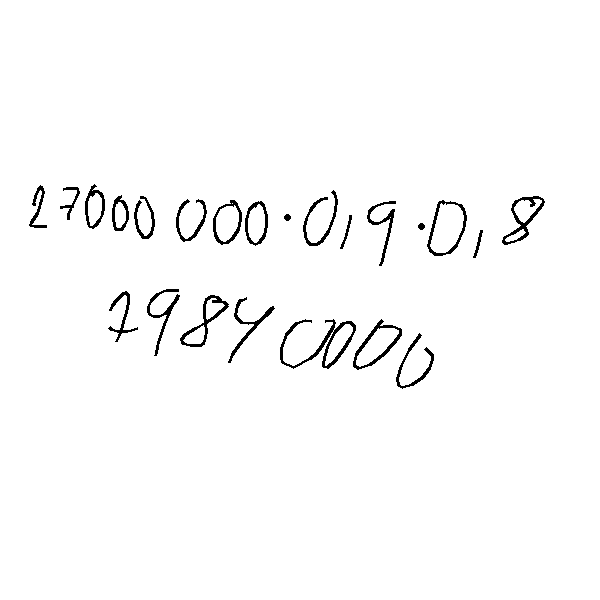 27000 000·0,9·0,8
79840000